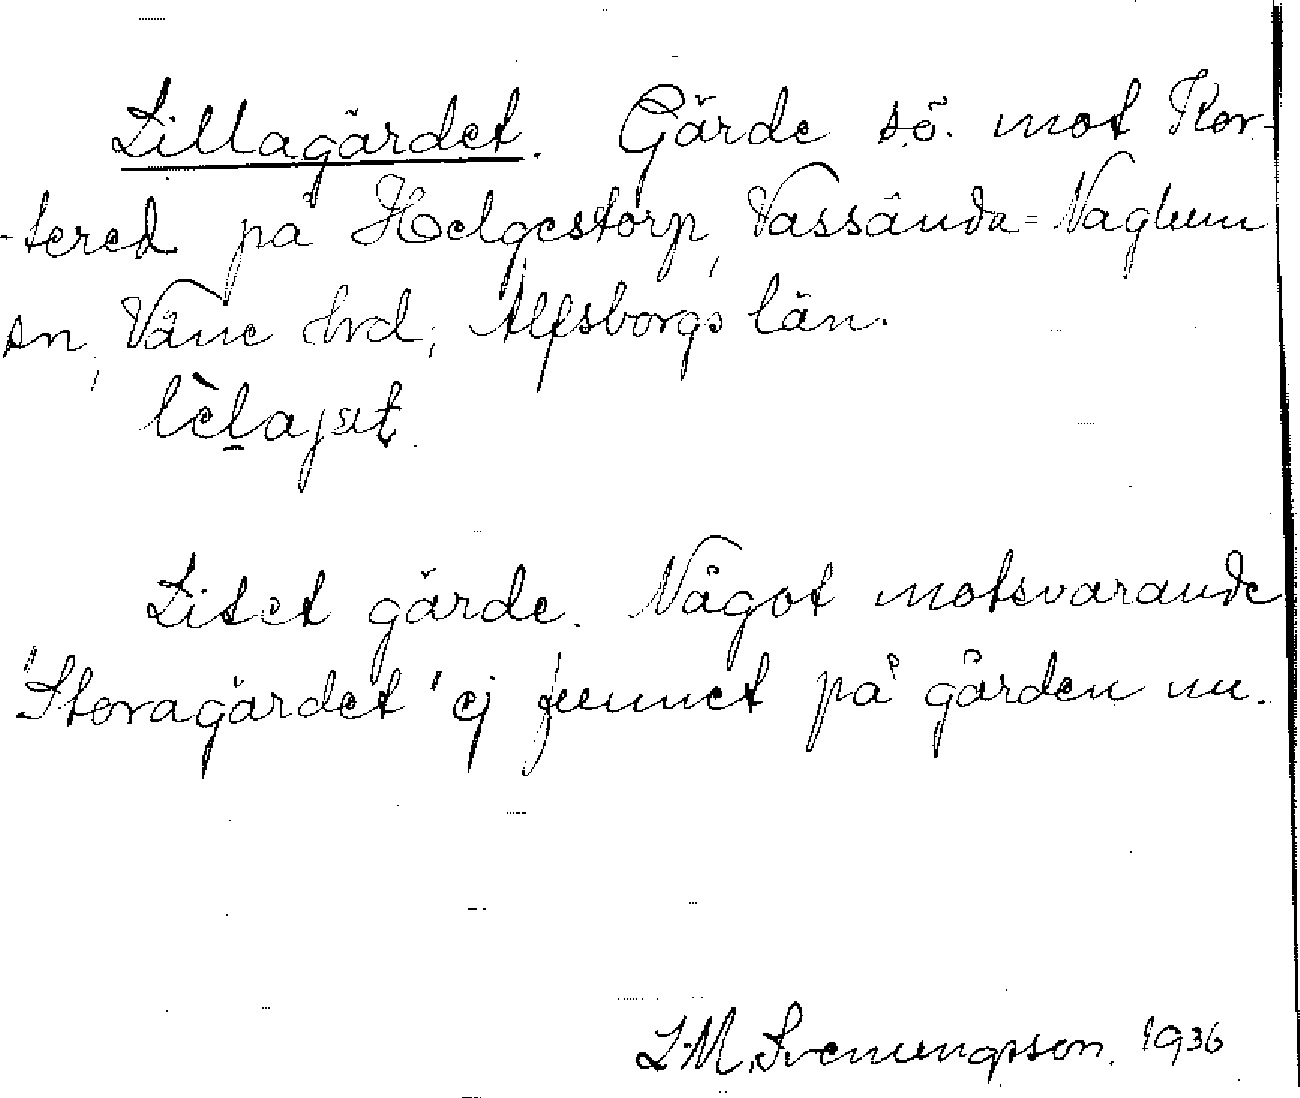 Lillagärdet. Gärde sö. mot Kor-
-tered på Helgestorp, Vassända=Naglum
sn, Väne hrd, Älfsborgs län.
lèlajæt.
Litet gärde. Något motsvarande
"Storagärdet" ej funnet på gården nu.
L.M. Svenungsson. 1936